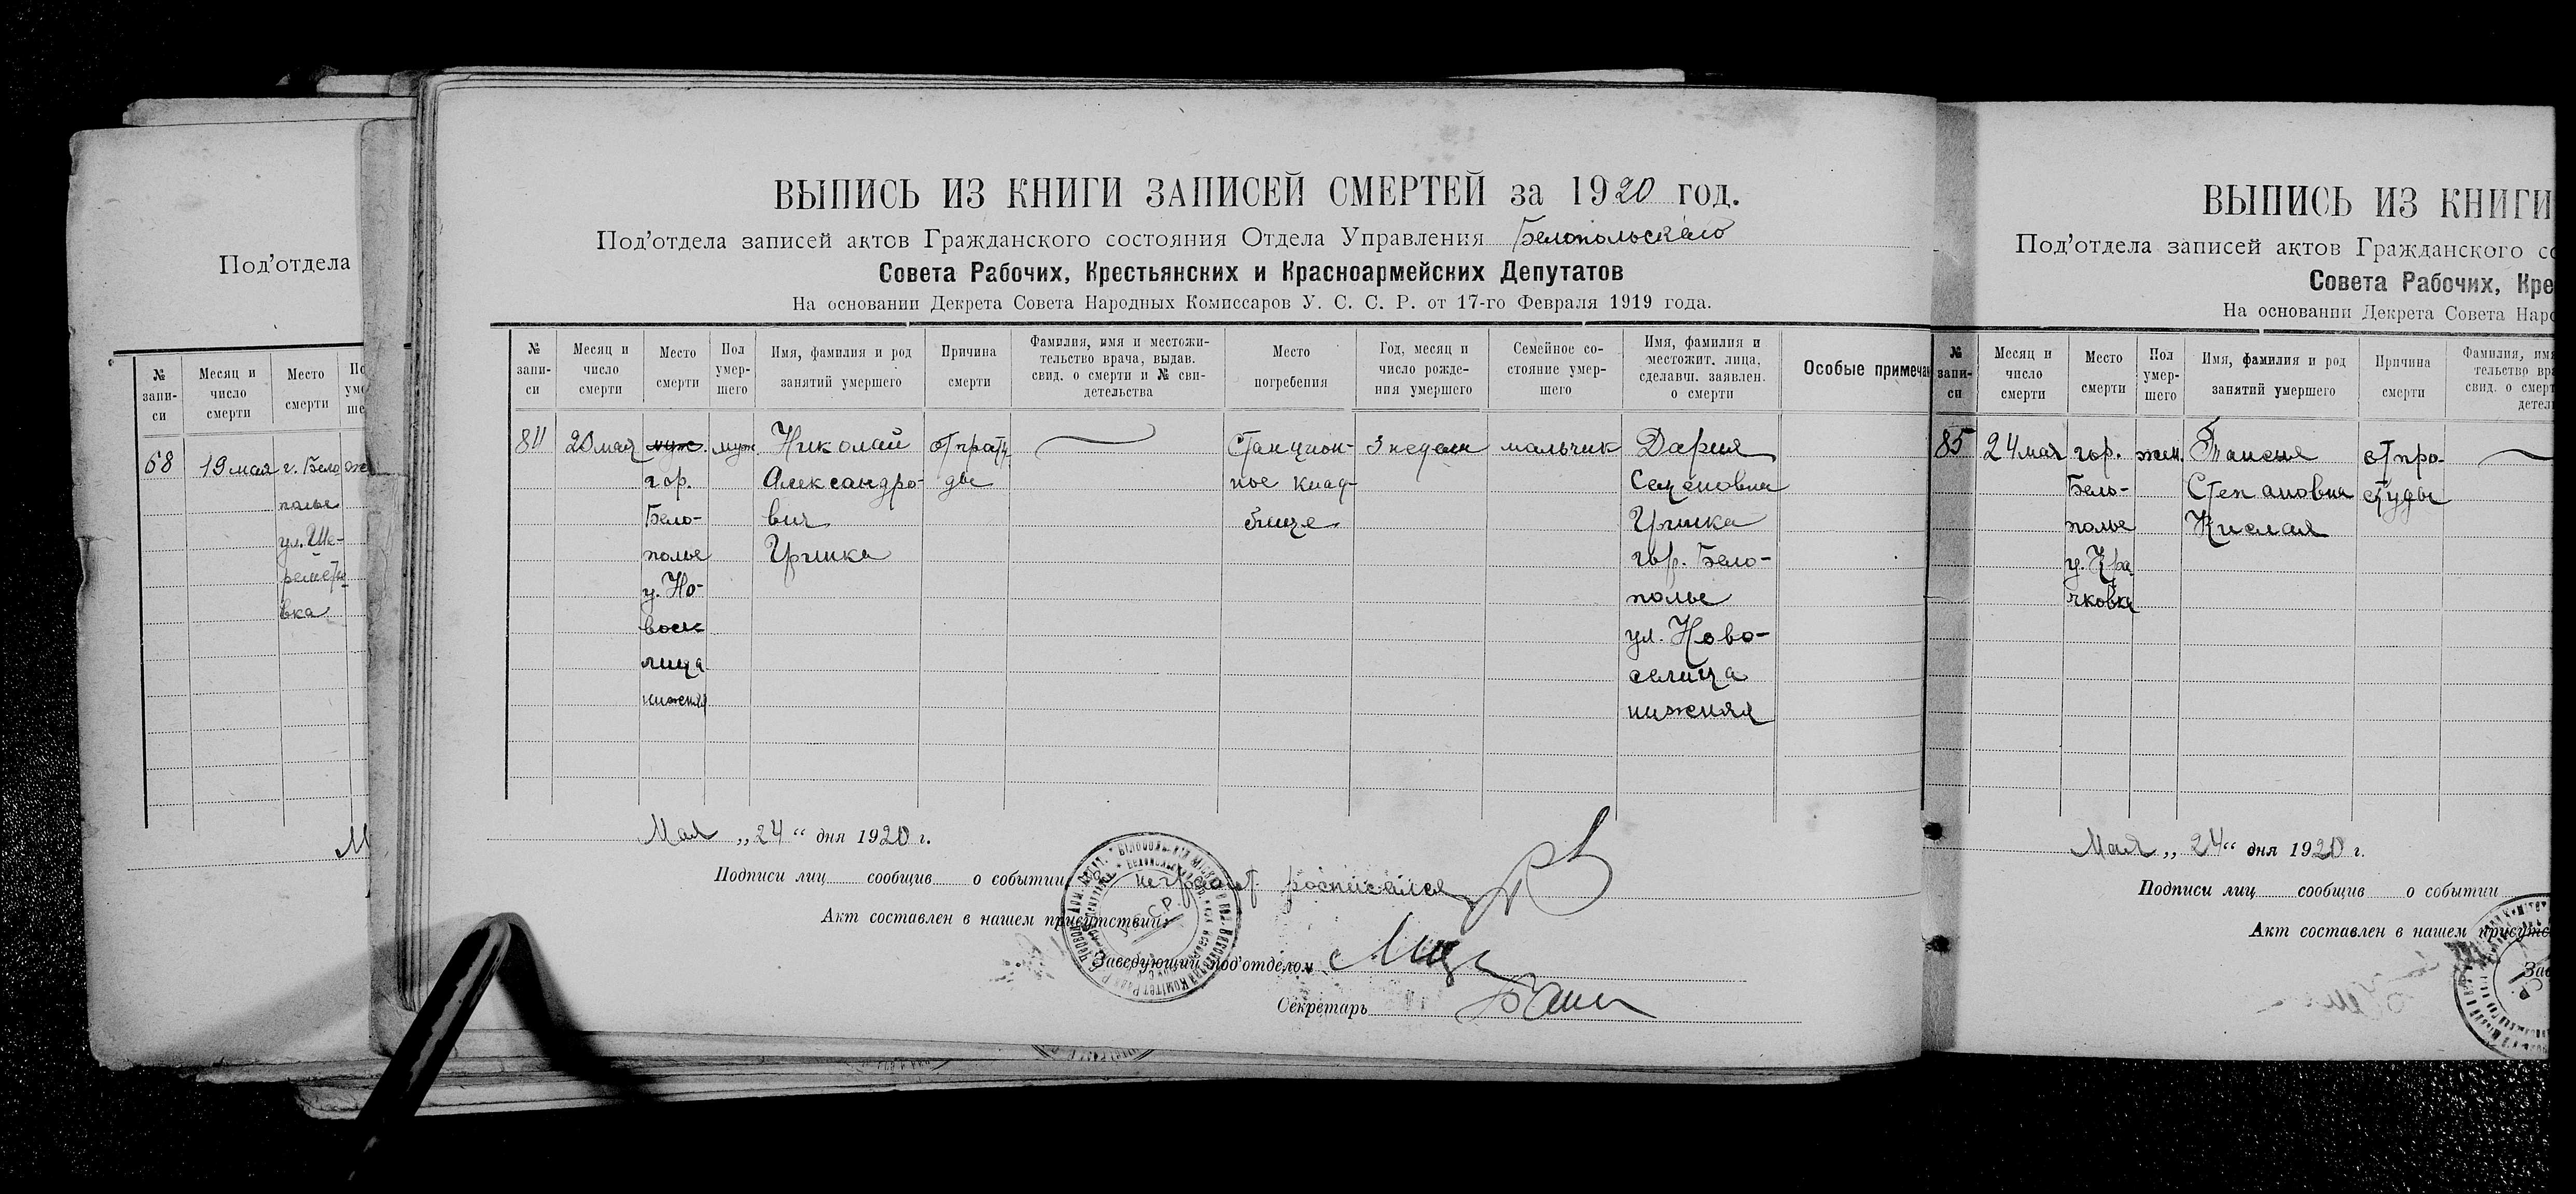 Под'отдела
№ запи-си
Месяц и число смерти
Место смерти
68 19 мая г. Бело
полье
ул. Ше-
вка
ВЫПИСЬ ИЗ КНИГИ ЗАПИСЕЙ СМЕРТЕЙ за 1920 год.
Под'отдела записей актов Гражданского состояния Отдела Управления Белопольского
Совета Рабочих, Крестьянских и Красноармейских Депутатов
На основании Декрета Совета Народных Комиссаров У. С. С. Р. от 17-го Февраля 1919 года.
№ запи-си
Месяц и число смерти
Место смерти
Пол умер-шего
Имя, фамилия и род занятий умершего
Причина смерти
Фамилия, имя и местожи-тельство врача, выдав. свид. о смерти и № сви-детельства
Место погребения
Год, месяц и число рожде-ния умершего
Семейное со-стояние умер-шего
Имя, фамилия и местожит. лица, сделавш. заявлен. о смерти
Особые примечан
84 20 мая муж. муж. Николай от прасту станцион- 3 недели мальчик Дария
гор. Александро- ды ное клад- Семеновна
Бело- вич бище Гришка
полье Гришка гор. Бело-
у. Но- полье
восе ул. Ново-
лица селица
нижняя нижняя
Мая „24“ дня 1920 г.
Подписи лиц сообщив о событии неграмот. росписался
Акт составлен в нашем присутствии:
Заведующий под'отделом
Секретарь
ВЫПИСЬ ИЗ КНИГИ
Под'отдела записей актов Гражданского со
Совета Рабочих, Кре
На основании Декрета Совета Наро
№ запи-си
Месяц и число смерти
Место смерти
Пол умер-шего
Имя, фамилия и род занятий умершего
Причина смерти
Фамилия, имя тельство вра свид. о смерт детель
85 24 мая гор. жен. Таисия от про-
Бело- Степановна студы
полье Кислая
у. Кра
чковка
Мая „24“ дня 1920 г.
Подписи лиц сообщив о событии
Акт составлен в нашем присутс
Зав